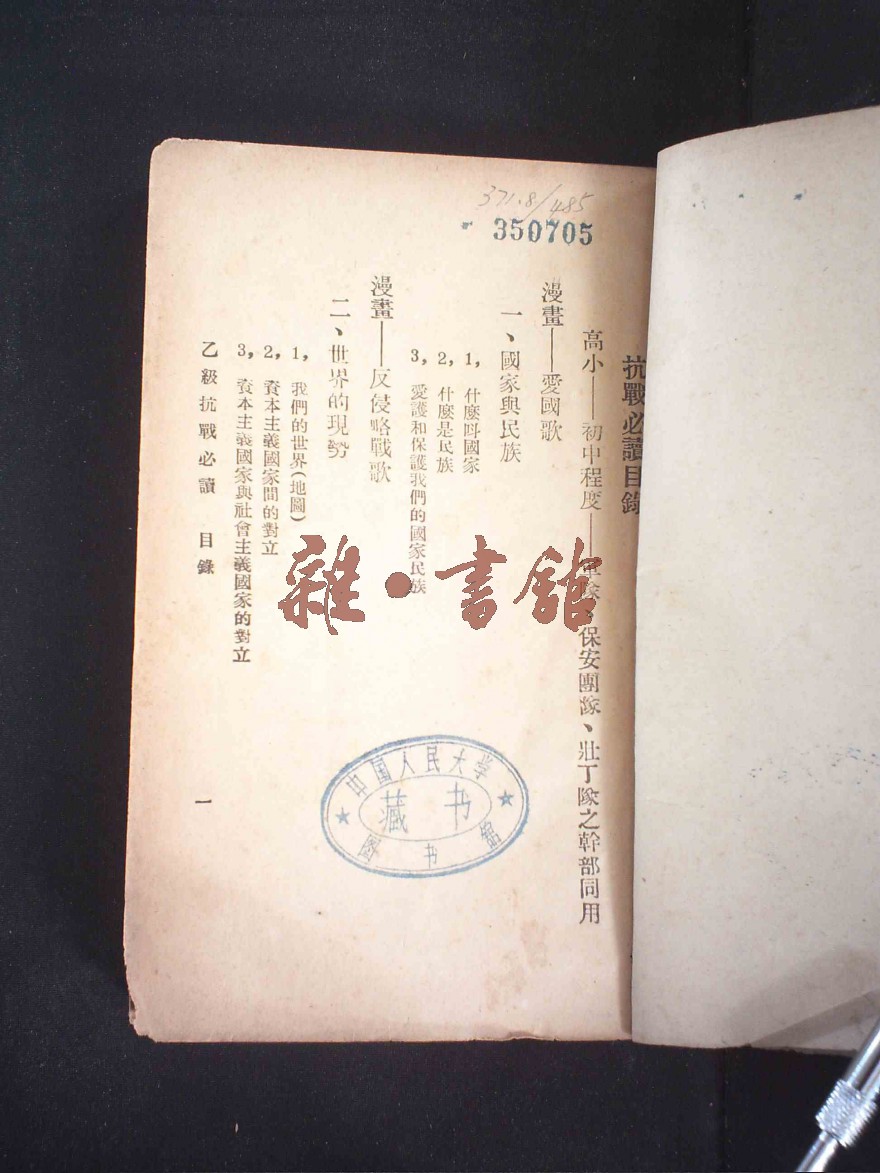 371.8/485
350705
抗戰必讀目錄
高小——初中程度——隊、保安團隊、壯丁隊之幹部同用
漫畫——愛國歌
一、國家與民族
1，什麼叫國家
2，什麼是民族
3，愛護和保護我們的國家民族
漫畫——反侵略戰歌
二、世界的現勢
1，我們的世界(地圖)
2，資本主義國家間的對立
3，資本主義國家與社會主義國家的對立
乙級抗戰必讀 目錄
一
雜·書館
中国人民大学
藏书
图书馆